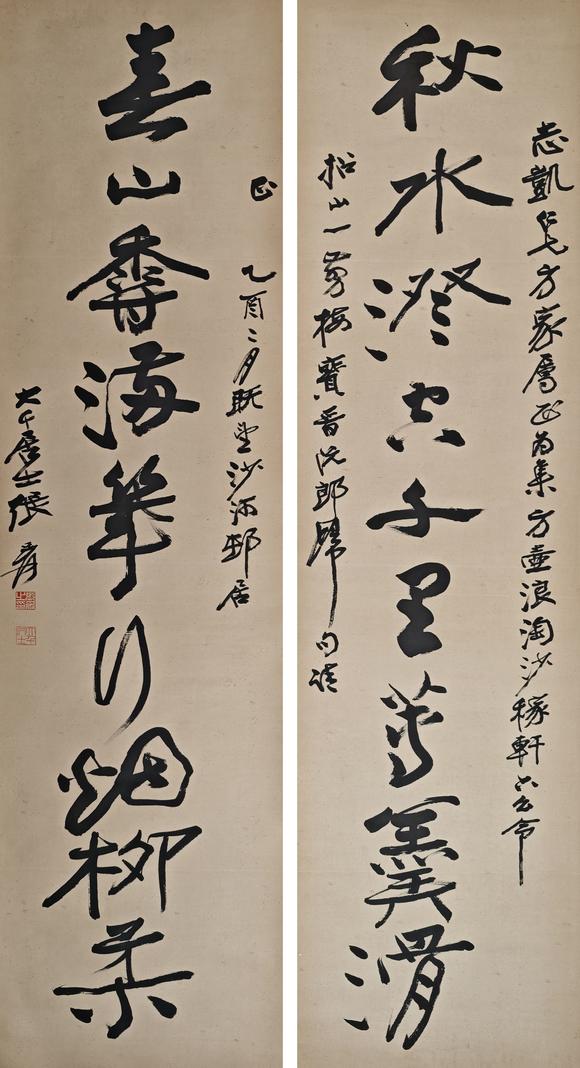 志凱仁兄方家屬正為集方壺浪淘沙稼軒六么令
秋水澄空千里蓴羹滑
招山一剪梅寶晉阮郎歸句請
正
乙酉二月既望沙河邨居
春山海幾行烟柳柔
大千居士張爰